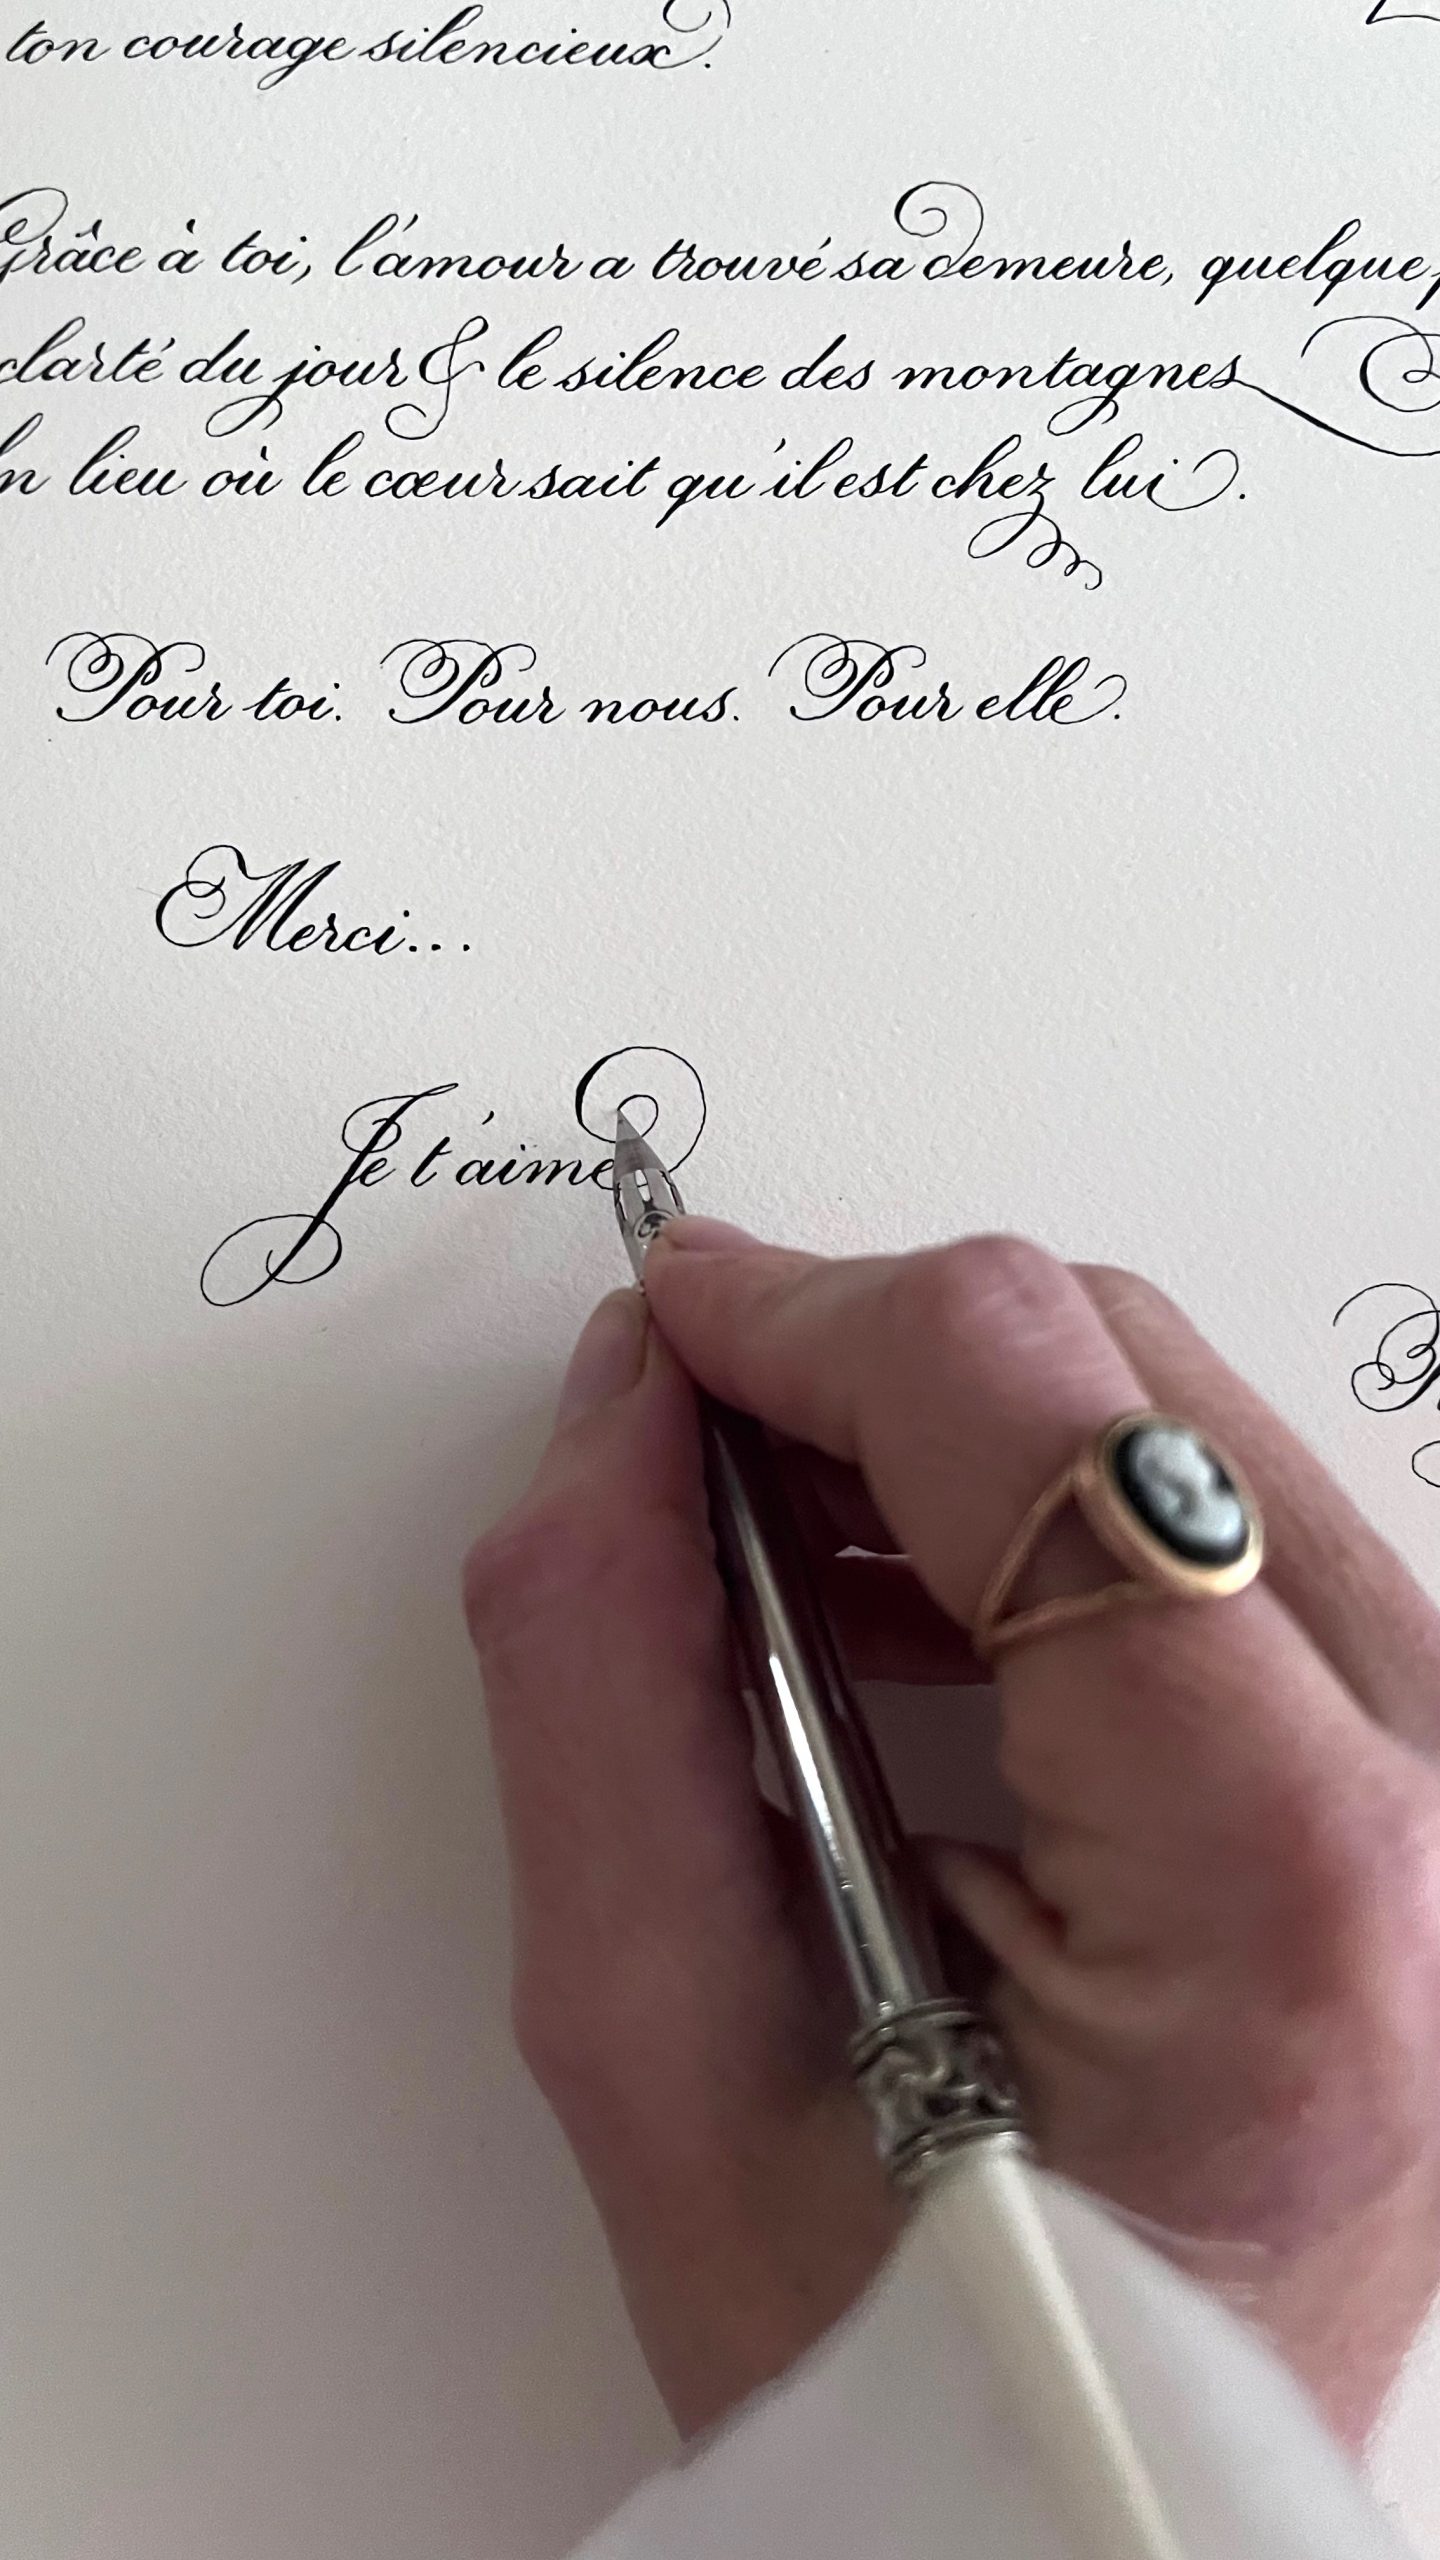 ton courage silencieux.
Grâce à toi, l'amour a trouvé sa demeure, quelque
clarté du jour & le silence des montagnes
lieu où le cœur sait qu'il est chez lui.
Pour toi. Pour nous. Pour elle.
Merci...
Je t'aime